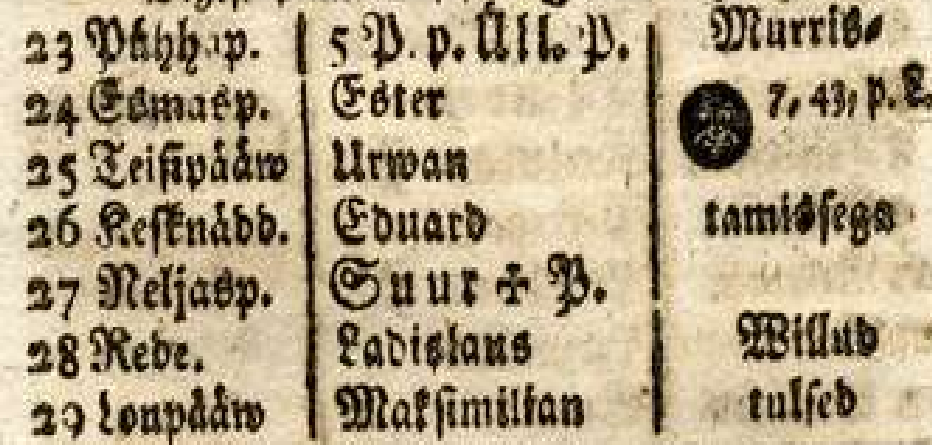 23 Pühhap. 5 P. p. Ull. P. Murris-
24 Esmasp. Ester 7, 43, p. L.
25 Teisipääw Urwan
26 Kesknädd. Eduard tamissegs
27 Neljasp. Suur ✠ P.
28 Rede. Ladislaus Willud
29 Loupääw Maksimilian tulsed